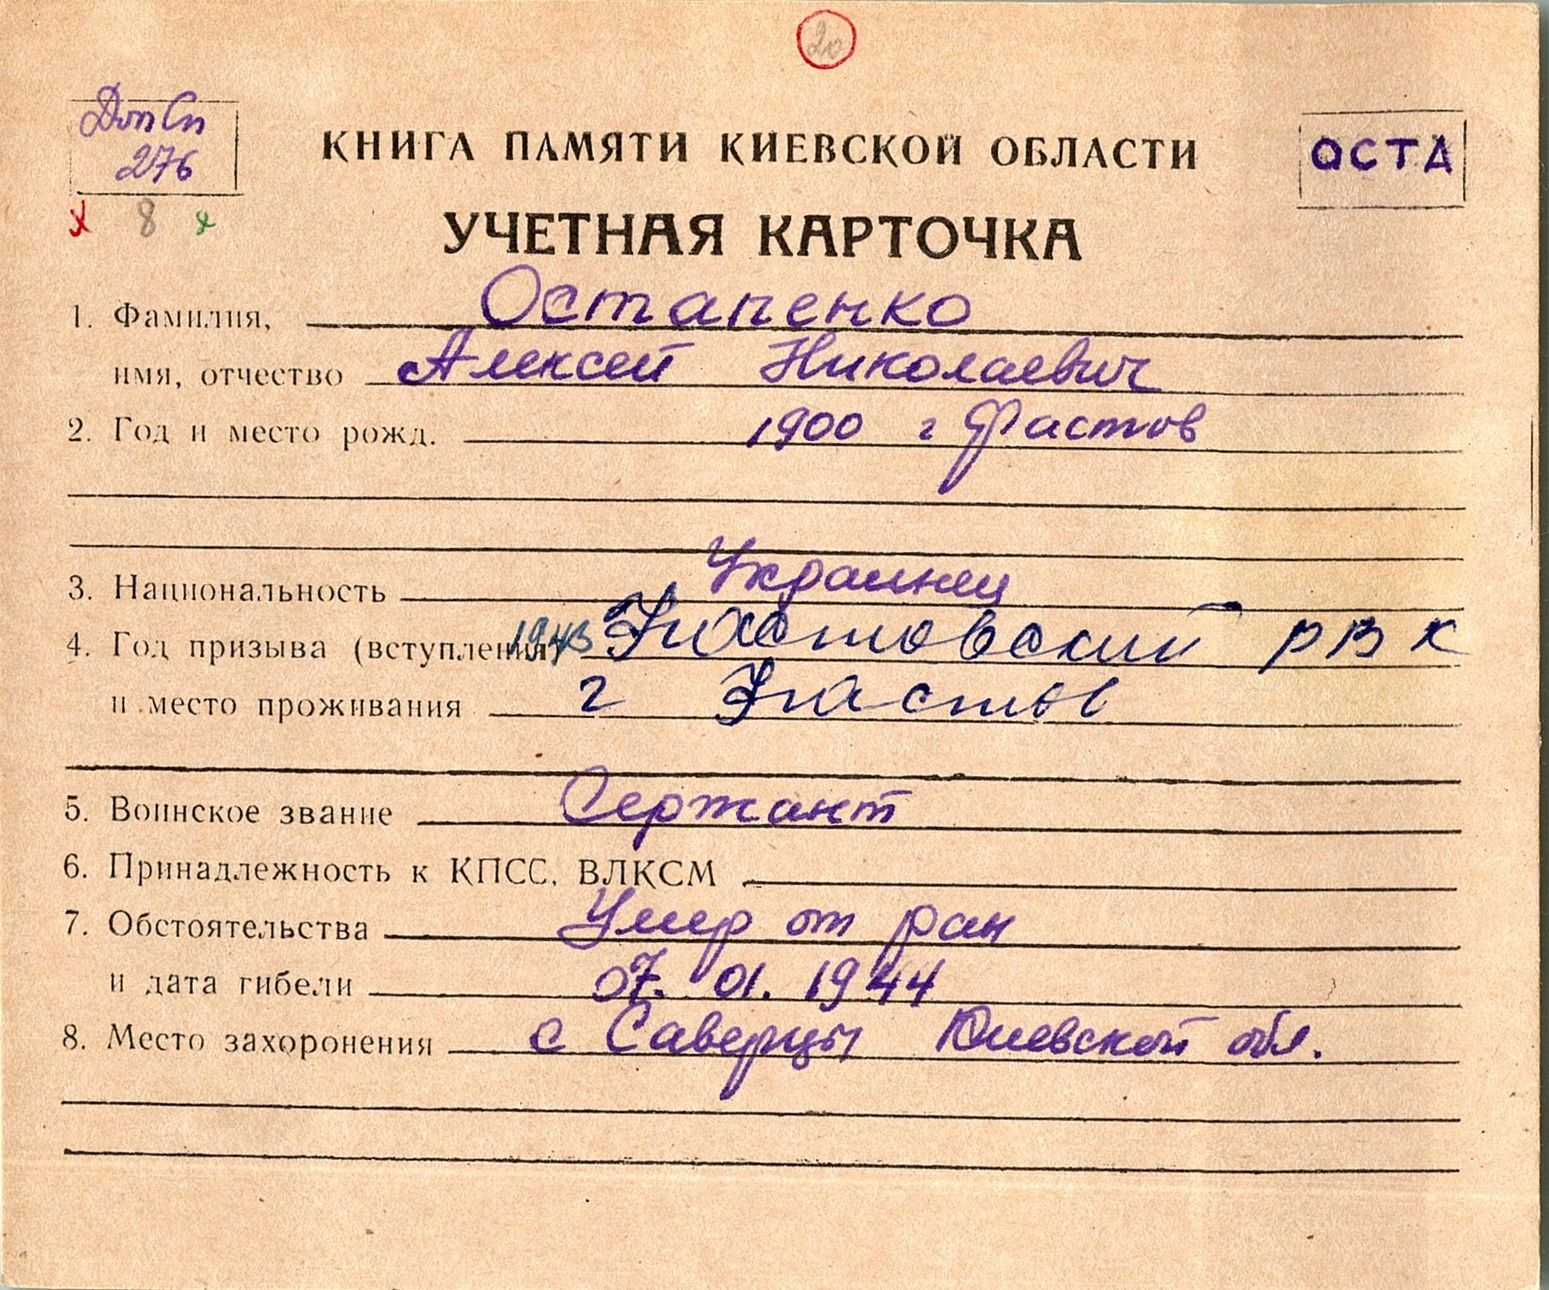 20
Доп Сп
276
КНИГА ПАМЯТИ КИЕВСКОЙ ОБЛАСТИ
ОСТА
х 8 х
УЧЕТНАЯ КАРТОЧКА
1. Фамилия, Остапенко
имя, отчество Алексей Николаевич
2. Год и место рожд. 1900 г Фастов
3. Национальность Украинец
4. Год призыва (вступления) 1943 Фастовский РВК
и место проживания г Фастов
5. Воинское звание Сержант
6. Принадлежность к КПСС, ВЛКСМ
7. Обстоятельства Умер от ран
и дата гибели 07. 01. 1944
8. Место захоронения с Саверцы Киевской обл.